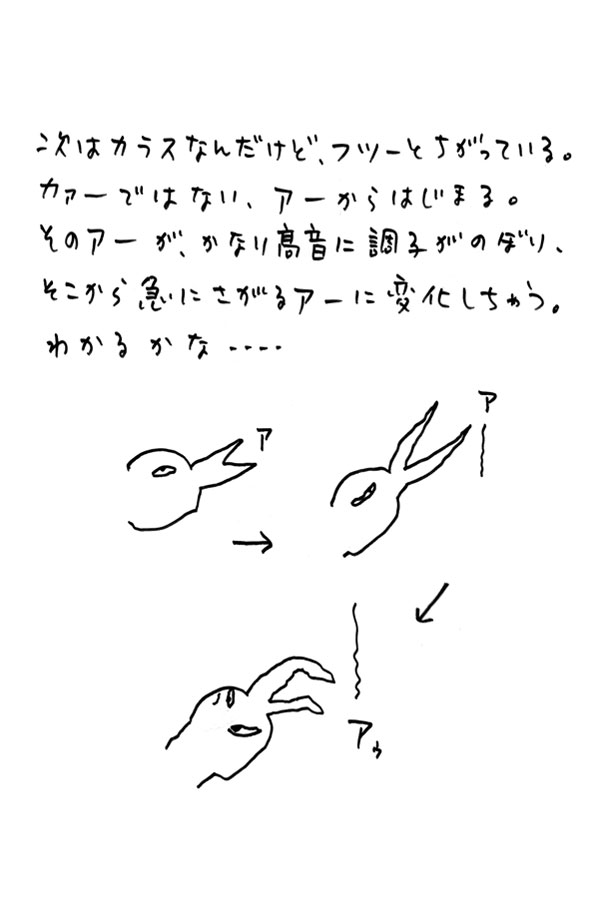 次はカラスなんだけど、フツーとちがっている。
カァーではない、アーからはじまる。
そのアーが、かなり高音に調子がのぼり、
そこから急にさがるアーに変化しちゃう。
わかるかな・・・・
ア
ア
アゥ